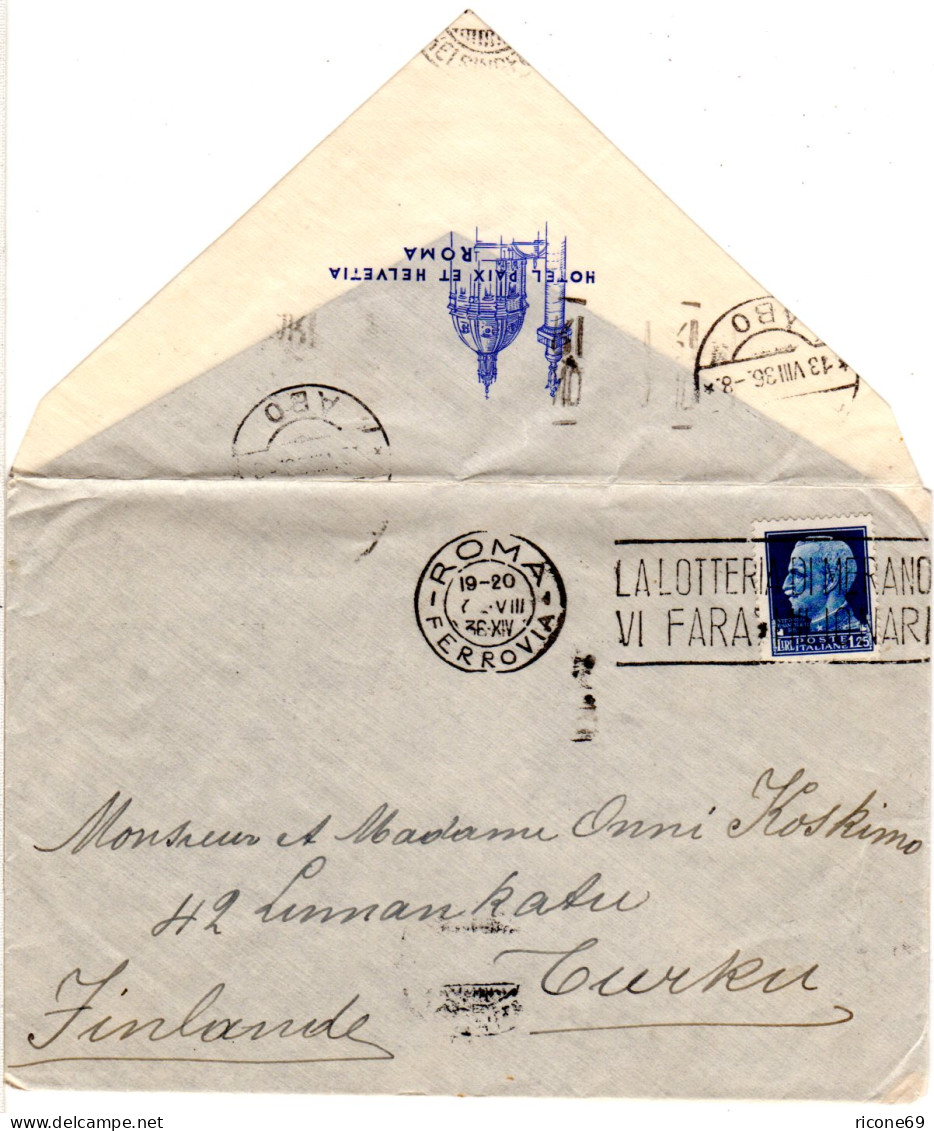 ELSINGF
HOTEL PAIX ET HELVETIA
ROMA
ABO
13 VIII 36.-8.
ABO
ROMA
19-20
VIII
36·XIV
FERROVIA
LA LOTTERIA DI MERANO
VI FARA' MILIONARI
POSTE
ITALIANE
LIRE 1.25
Monsieur et Madame Onni Koskimo
42 Linnankatu
Turku
Finlande
delcampe.net
ricone69